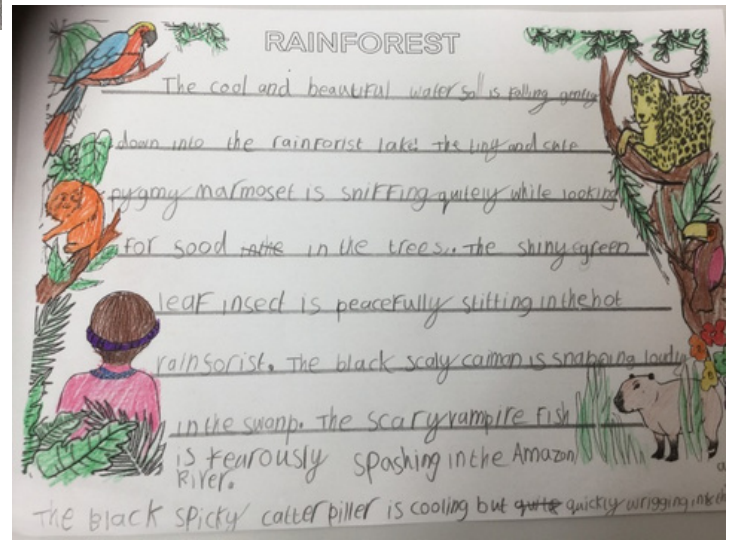 RAINFOREST
The cool and beautiful watersall is falling gently
down into the rainforist lake. The tiny and cute
pygmy marmoset is sniffing quitely while looking
for sood in the trees.. The shiny green
leaf insect is peacefully slitting in the hot
rainsorist. The black scaly caiman is snapping loudly
in the swanp. The scary vampire fish
is fearously spashing in the Amazon
River.
The black spicky catterpiller is cooling but quickly wrigging